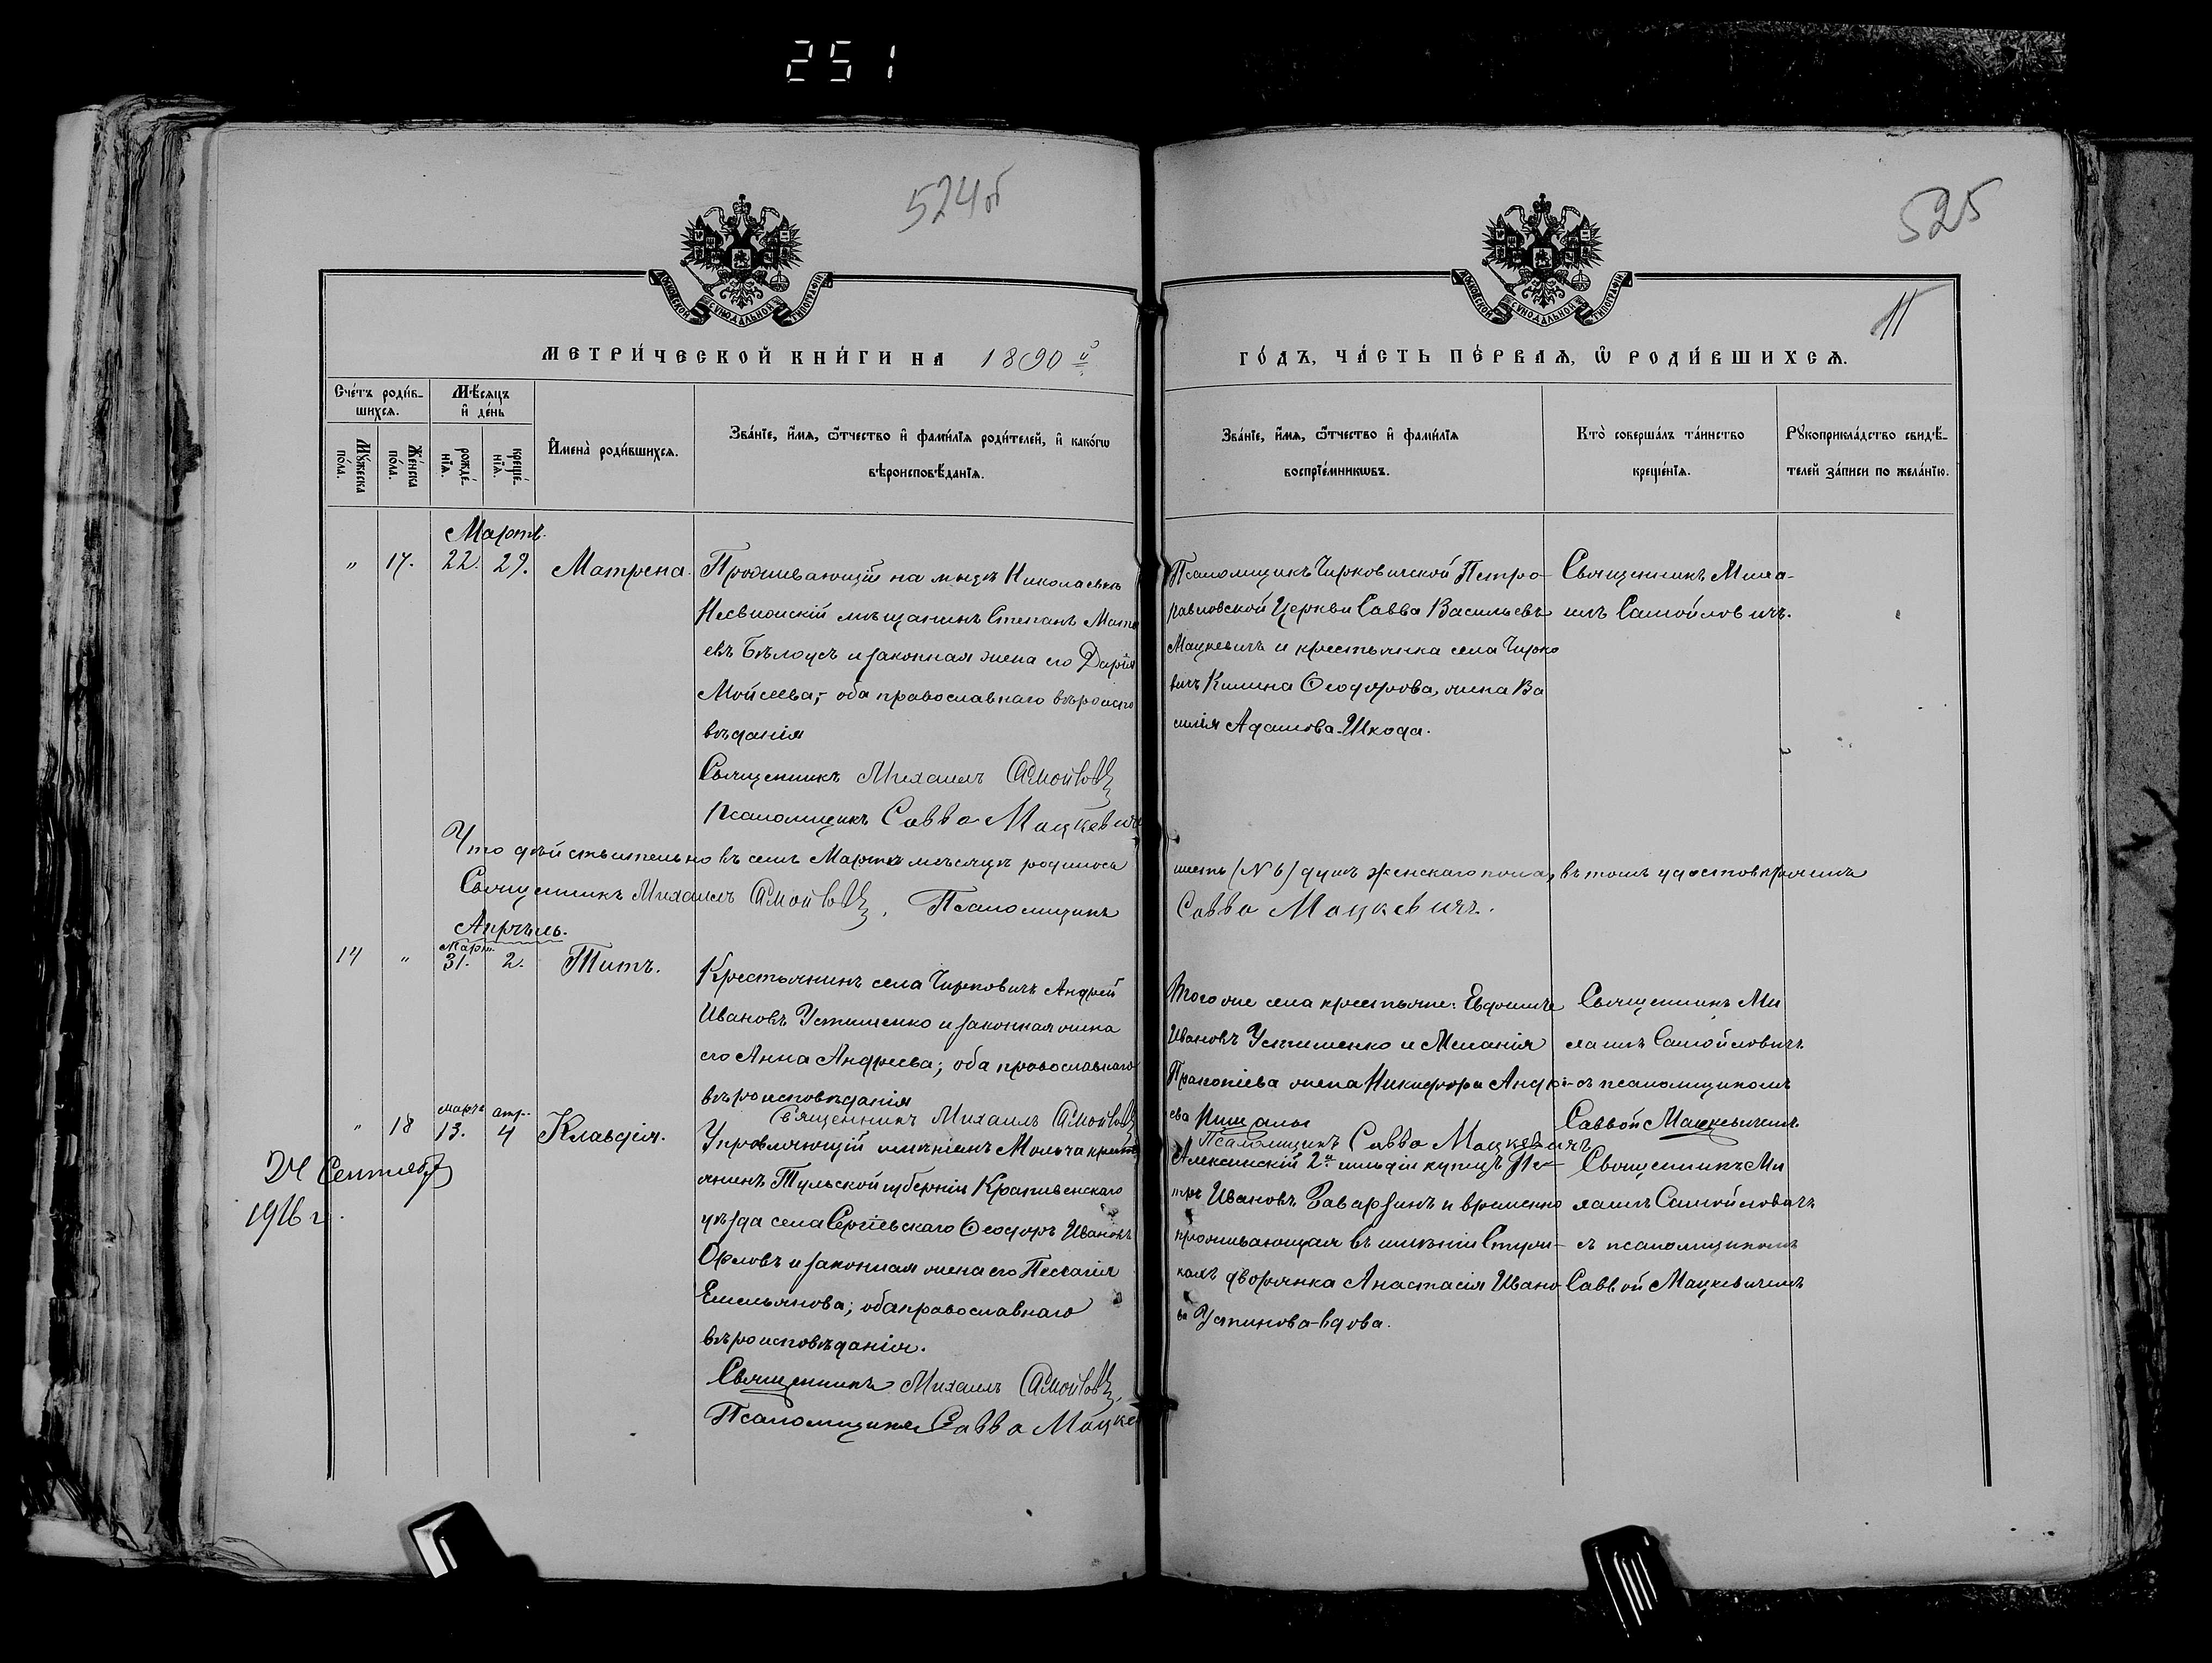 251
524об
525
11
МОСКОВСКОЙ СѴНОДАЛЬНОЙ ТИПОГРАФІИ
МОСКОВСКОЙ СѴНОДАЛЬНОЙ ТИПОГРАФІИ
МЕТРИ́ЧЕСКОЙ КНИ́ГИ НА 1890 й
ГО́ДЪ, ЧА́СТЬ ПЕ́РВАѦ, Ѡ҆ РОДИ́ВШИХСѦ.
Сче́тъ роди́в-
шихсѧ.
Мѣ́сѧцъ
и҆ де́нь
Мꙋ́жеска
по́ла.
Же́нска
по́ла.
рожде́-
нїѧ.
креще́-
нїѧ.
И҆мена̀ роди́вшихсѧ.
Зва́нїе, и҆́мѧ, ѻ҆́тчество и҆ фами́лїѧ роди́телей, и҆ како́гѡ
вѣроисповѣ́данїѧ.
Зва́нїе, и҆́мѧ, ѻ҆́тчество и҆ фами́лїѧ
воспрїе́мникѡвъ.
Кто̀ соверша́лъ та́инство
креще́нїѧ.
Рꙋкоприкла́дство свидѣ́-
телей за́писи по жела́нїю.
Мартъ.
" 17. 22. 29. Матрена.
Проживающій на мызѣ Николаевкѣ
Несвижскій мѣщанинъ Степанъ Матѳ
евъ Бѣлоусъ и законная жена его Дарія
Мойсеева; оба православнаго вѣроиспо
вѣданія
Священникъ Михаилъ Самойловичъ
Псаломщикъ Савва Мацкевичъ
Псаломщикъ Чирковичской Петро-
павловской Церкви Савва Васильевъ
Мацкевичъ и крестьянка села Чирко
вичъ Килина Ѳеодорова, жена Ва
силія Адамова Шкода.
Священникъ Миха-
илъ Самойловичъ.
Что дѣйствительно въ семъ Мартѣ мѣсяцѣ родилось
шесть (№ 6) душъ женскаго пола, въ томъ удостовѣряемъ
Священникъ Михаилъ Самойловичъ. Псаломщикъ
Савва Мацкевичъ.
Апрѣль.
Март.
14 " 31. 2. Титъ.
Крестьянинъ села Чирковичъ Андрей
Ивановъ Устименко и законная жена
его Анна Андреева; оба православнаго
вѣроисповѣданія
Священникъ Михаилъ Самойловичъ
Того же села крестьяне: Евдокимъ
Ивановъ Устименко и Меланія
Прокопіева жена Никифора Андре-
ева
Псаломщикъ Савва Мацкевичъ
Священникъ Ми
хаилъ Самойловичъ
съ псаломщикомъ
Саввой Мацкевичемъ
мартъ апр.
" 18 13. 4 Клавдія.
24 Сентября
1916 г.
Управляющій имѣніемъ Молча крест
янинъ Тульской губерніи Крапивенскаго
уѣзда села Сергіевскаго Ѳеодоръ Ивановъ
Орловъ и законная жена его Пелагія
Емельянова; оба православнаго
вѣроисповѣданія.
Священникъ Михаилъ Самойловичъ.
Псаломщикъ Савва Мацке
Алексинскій 2й гильдіи купецъ Пе-
тръ Ивановъ Заварзинъ и временно
проживающая въ имѣніи
дворянка Анастасія Ивано
ва Устинова-вдова.
Священникъ Ми
хаилъ Самойловичъ
съ псаломщикомъ
Саввой Мацкевичемъ